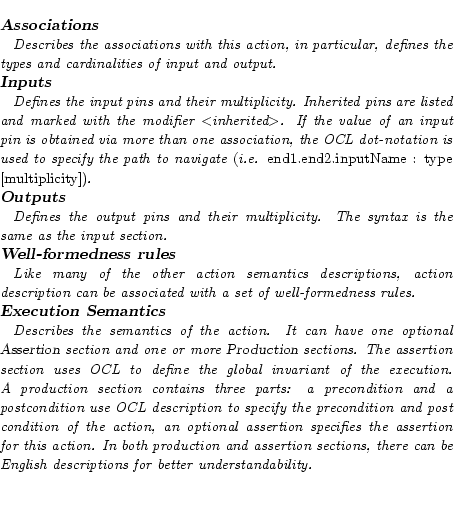 Associations
Describes the associations with this action, in particular, defines the
types and cardinalities of input and output.
Inputs
Defines the input pins and their multiplicity. Inherited pins are listed
and marked with the modifier <inherited>. If the value of an input
pin is obtained via more than one association, the OCL dot-notation is
used to specify the path to navigate (i.e. end1.end2.inputName : type
[multiplicity]).
Outputs
Defines the output pins and their multiplicity. The syntax is the
same as the input section.
Well-formedness rules
Like many of the other action semantics descriptions, action
description can be associated with a set of well-formedness rules.
Execution Semantics
Describes the semantics of the action. It can have one optional
Assertion section and one or more Production sections. The assertion
section uses OCL to define the global invariant of the execution.
A production section contains three parts: a precondition and a
postcondition use OCL description to specify the precondition and post
condition of the action, an optional assertion specifies the assertion
for this action. In both production and assertion sections, there can be
English descriptions for better understandability.